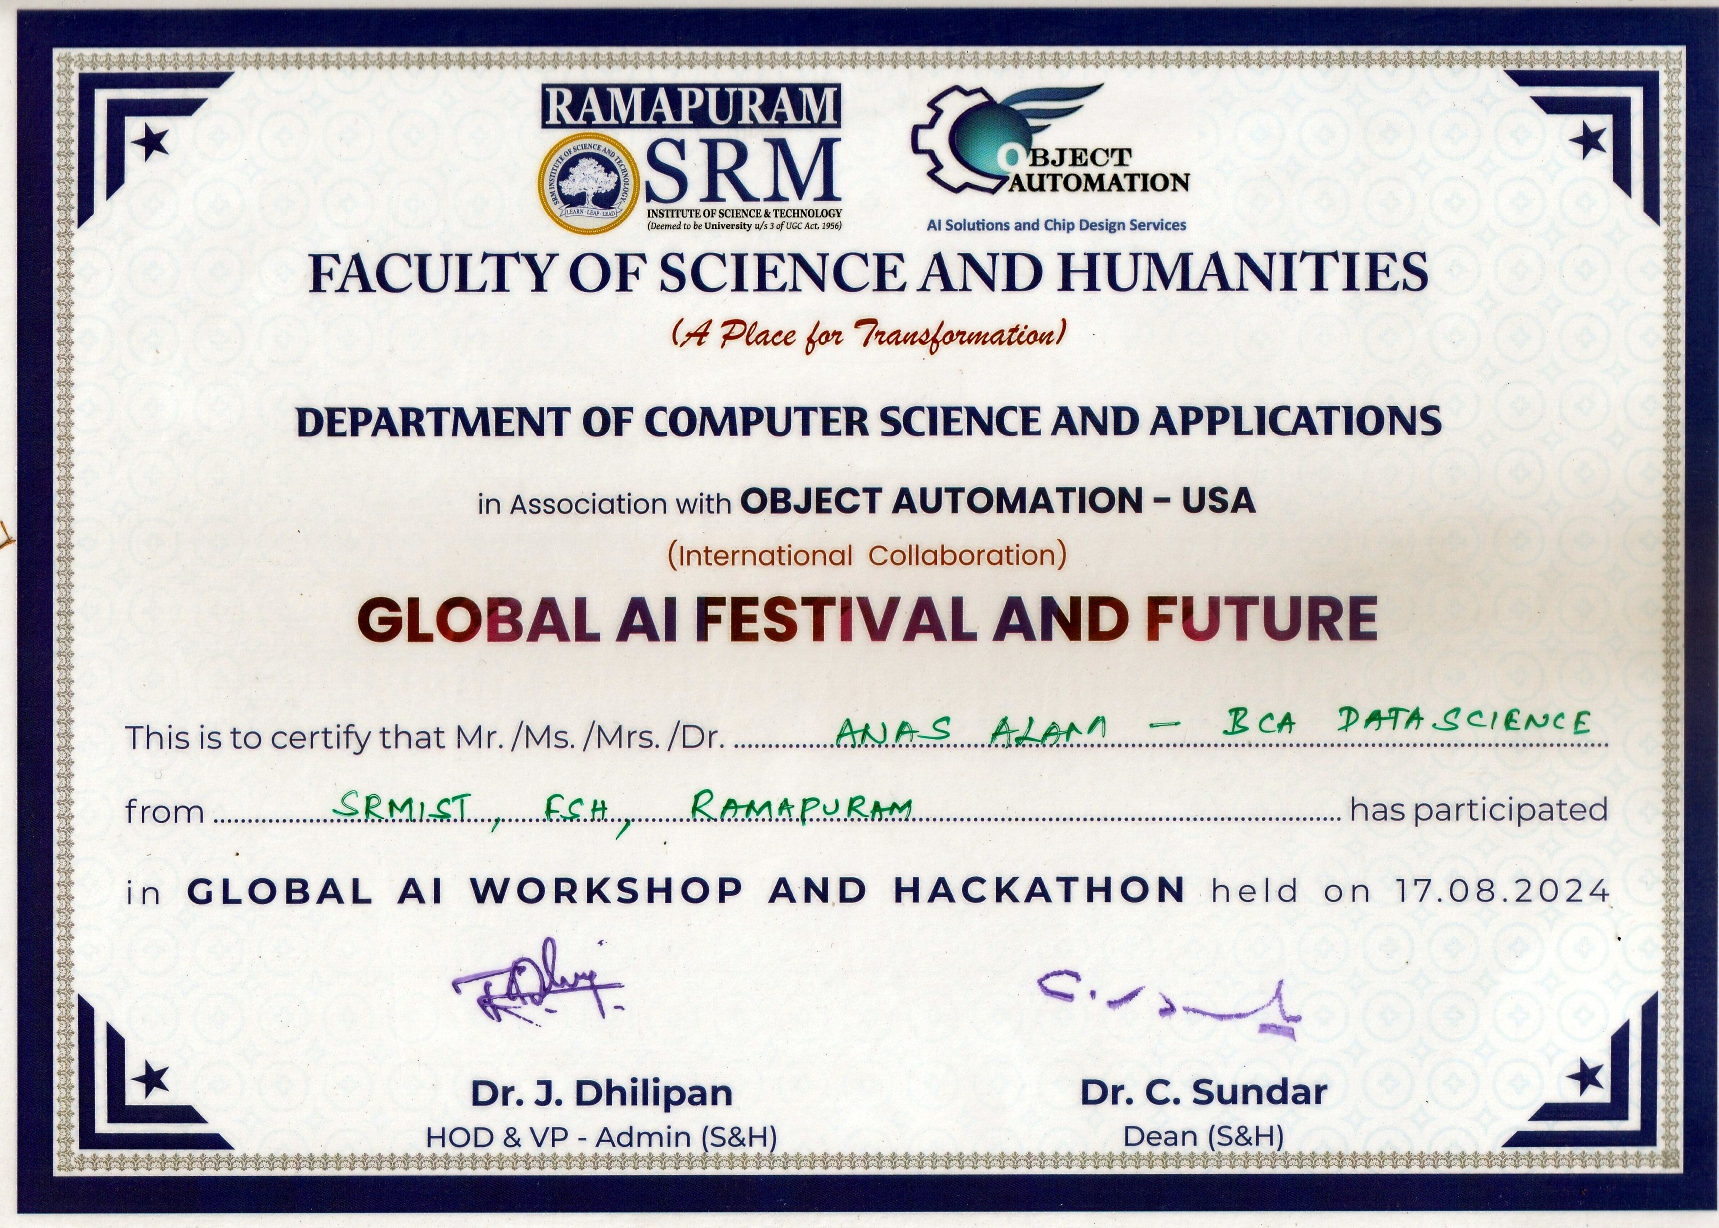 RAMAPURAM
SRM
INSTITUTE OF SCIENCE & TECHNOLOGY
(Deemed to be University u/s 3 of UGC Act, 1956)
SRM INSTITUTE OF SCIENCE AND TECHNOLOGY
LEARN - LEAP - LEAD
OBJECT
AUTOMATION
AI Solutions and Chip Design Services
FACULTY OF SCIENCE AND HUMANITIES
(A Place for Transformation)
DEPARTMENT OF COMPUTER SCIENCE AND APPLICATIONS
in Association with OBJECT AUTOMATION – USA
(International Collaboration)
GLOBAL AI FESTIVAL AND FUTURE
This is to certify that Mr. /Ms. /Mrs. /Dr. ANAS ALAM – BCA DATA SCIENCE
from SRMIST, FSH, RAMAPURAM has participated
in GLOBAL AI WORKSHOP AND HACKATHON held on 17.08.2024
Dr. J. Dhilipan
HOD & VP - Admin (S&H)
Dr. C. Sundar
Dean (S&H)